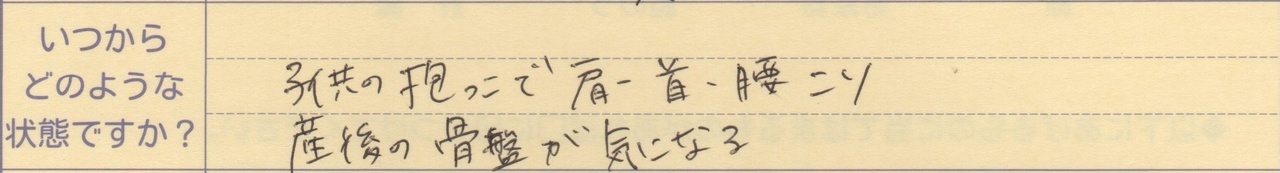 いつから
どのような
状態ですか？
子供の抱っこで肩・首・腰こり
産後の骨盤が気になる